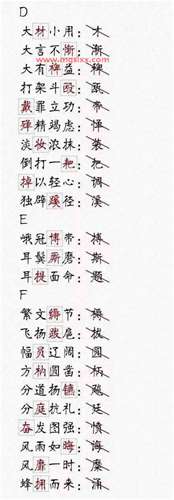 D
大材小用：
大言不惭：渐
大有裨益：稗
打架斗殴：
戴罪立功：带
殚精竭虑：惮
淡妆浓抹：装
倒打一耙：把
掉以轻心：调
独辟蹊径：溪
E
峨冠博带：搏
耳鬓厮磨：斯
耳提面命：题
F
繁文缛节：褥
飞扬跋扈：拔
幅员辽阔：圆
方枘圆凿：柄
分道扬镳：
分庭抗礼：廷
奋发图强：愤
风雨如晦：海
风靡一时：糜
蜂拥而来：涌